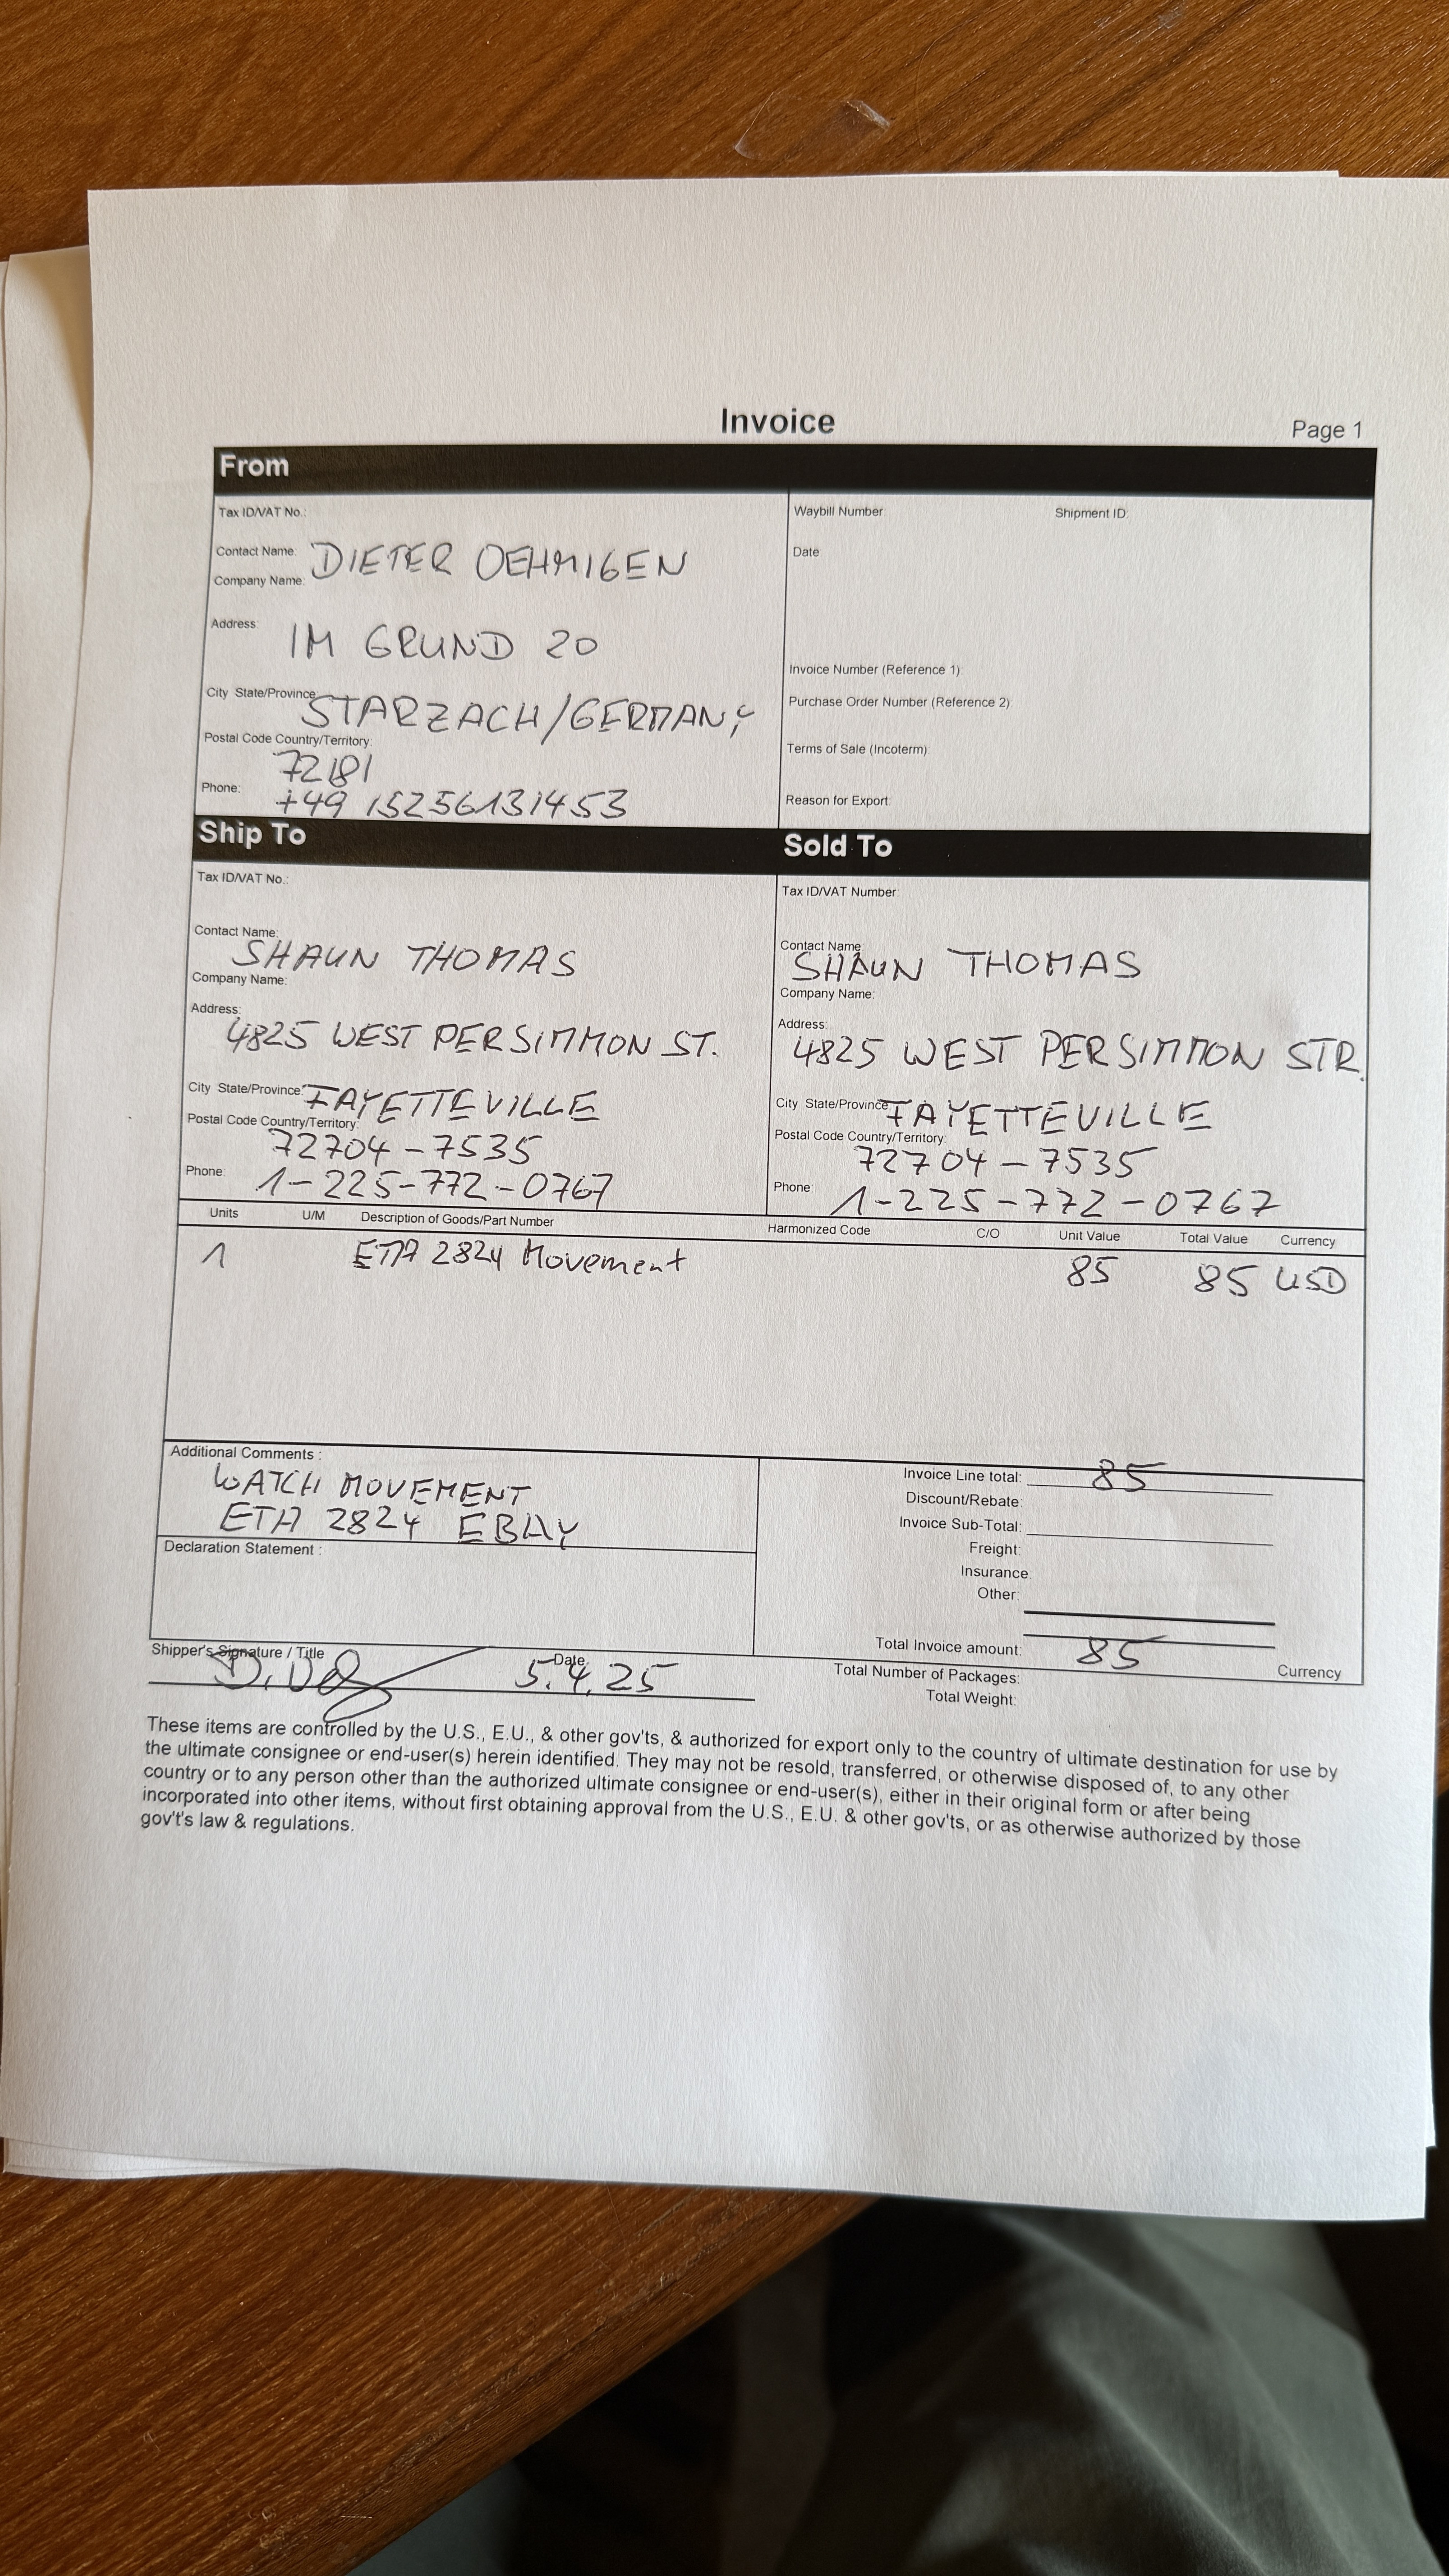 Invoice
Page 1
From
Tax ID/VAT No.:
Contact Name: DIETER OEHMIGEN
Company Name:
Address: IM GRUND 20
City State/Province STARZACH/GERMANY
Postal Code Country/Territory: 72181
Phone: +49 15256131453
Waybill Number: Shipment ID:
Date
Invoice Number (Reference 1):
Purchase Order Number (Reference 2):
Terms of Sale (Incoterm):
Reason for Export:
Ship To
Tax ID/VAT No.:
Contact Name: SHAUN THOMAS
Company Name:
Address: 4825 WEST PERSIMMON ST.
City State/Province: FAYETTEVILLE
Postal Code Country/Territory: 72704-7535
Phone: 1-225-772-0767
Sold To
Tax ID/VAT Number:
Contact Name: SHAUN THOMAS
Company Name:
Address: 4825 WEST PERSIMMON STR.
City State/Province FAYETTEVILLE
Postal Code Country/Territory: 72704-7535
Phone: 1-225-772-0767
Units U/M Description of Goods/Part Number Harmonized Code C/O Unit Value Total Value Currency
1 ETA 2824 Movement 85 85 USD
Additional Comments :
WATCH MOVEMENT
ETA 2824 EBAY
Declaration Statement :
Invoice Line total: 85
Discount/Rebate:
Invoice Sub-Total:
Freight:
Insurance:
Other:
Total Invoice amount: 85
Currency
Total Number of Packages:
Total Weight:
Shipper's Signature / Title
Date 5.4.25
These items are controlled by the U.S., E.U., & other gov'ts, & authorized for export only to the country of ultimate destination for use by
the ultimate consignee or end-user(s) herein identified. They may not be resold, transferred, or otherwise disposed of, to any other
country or to any person other than the authorized ultimate consignee or end-user(s), either in their original form or after being
incorporated into other items, without first obtaining approval from the U.S., E.U. & other gov'ts, or as otherwise authorized by those
gov't's law & regulations.